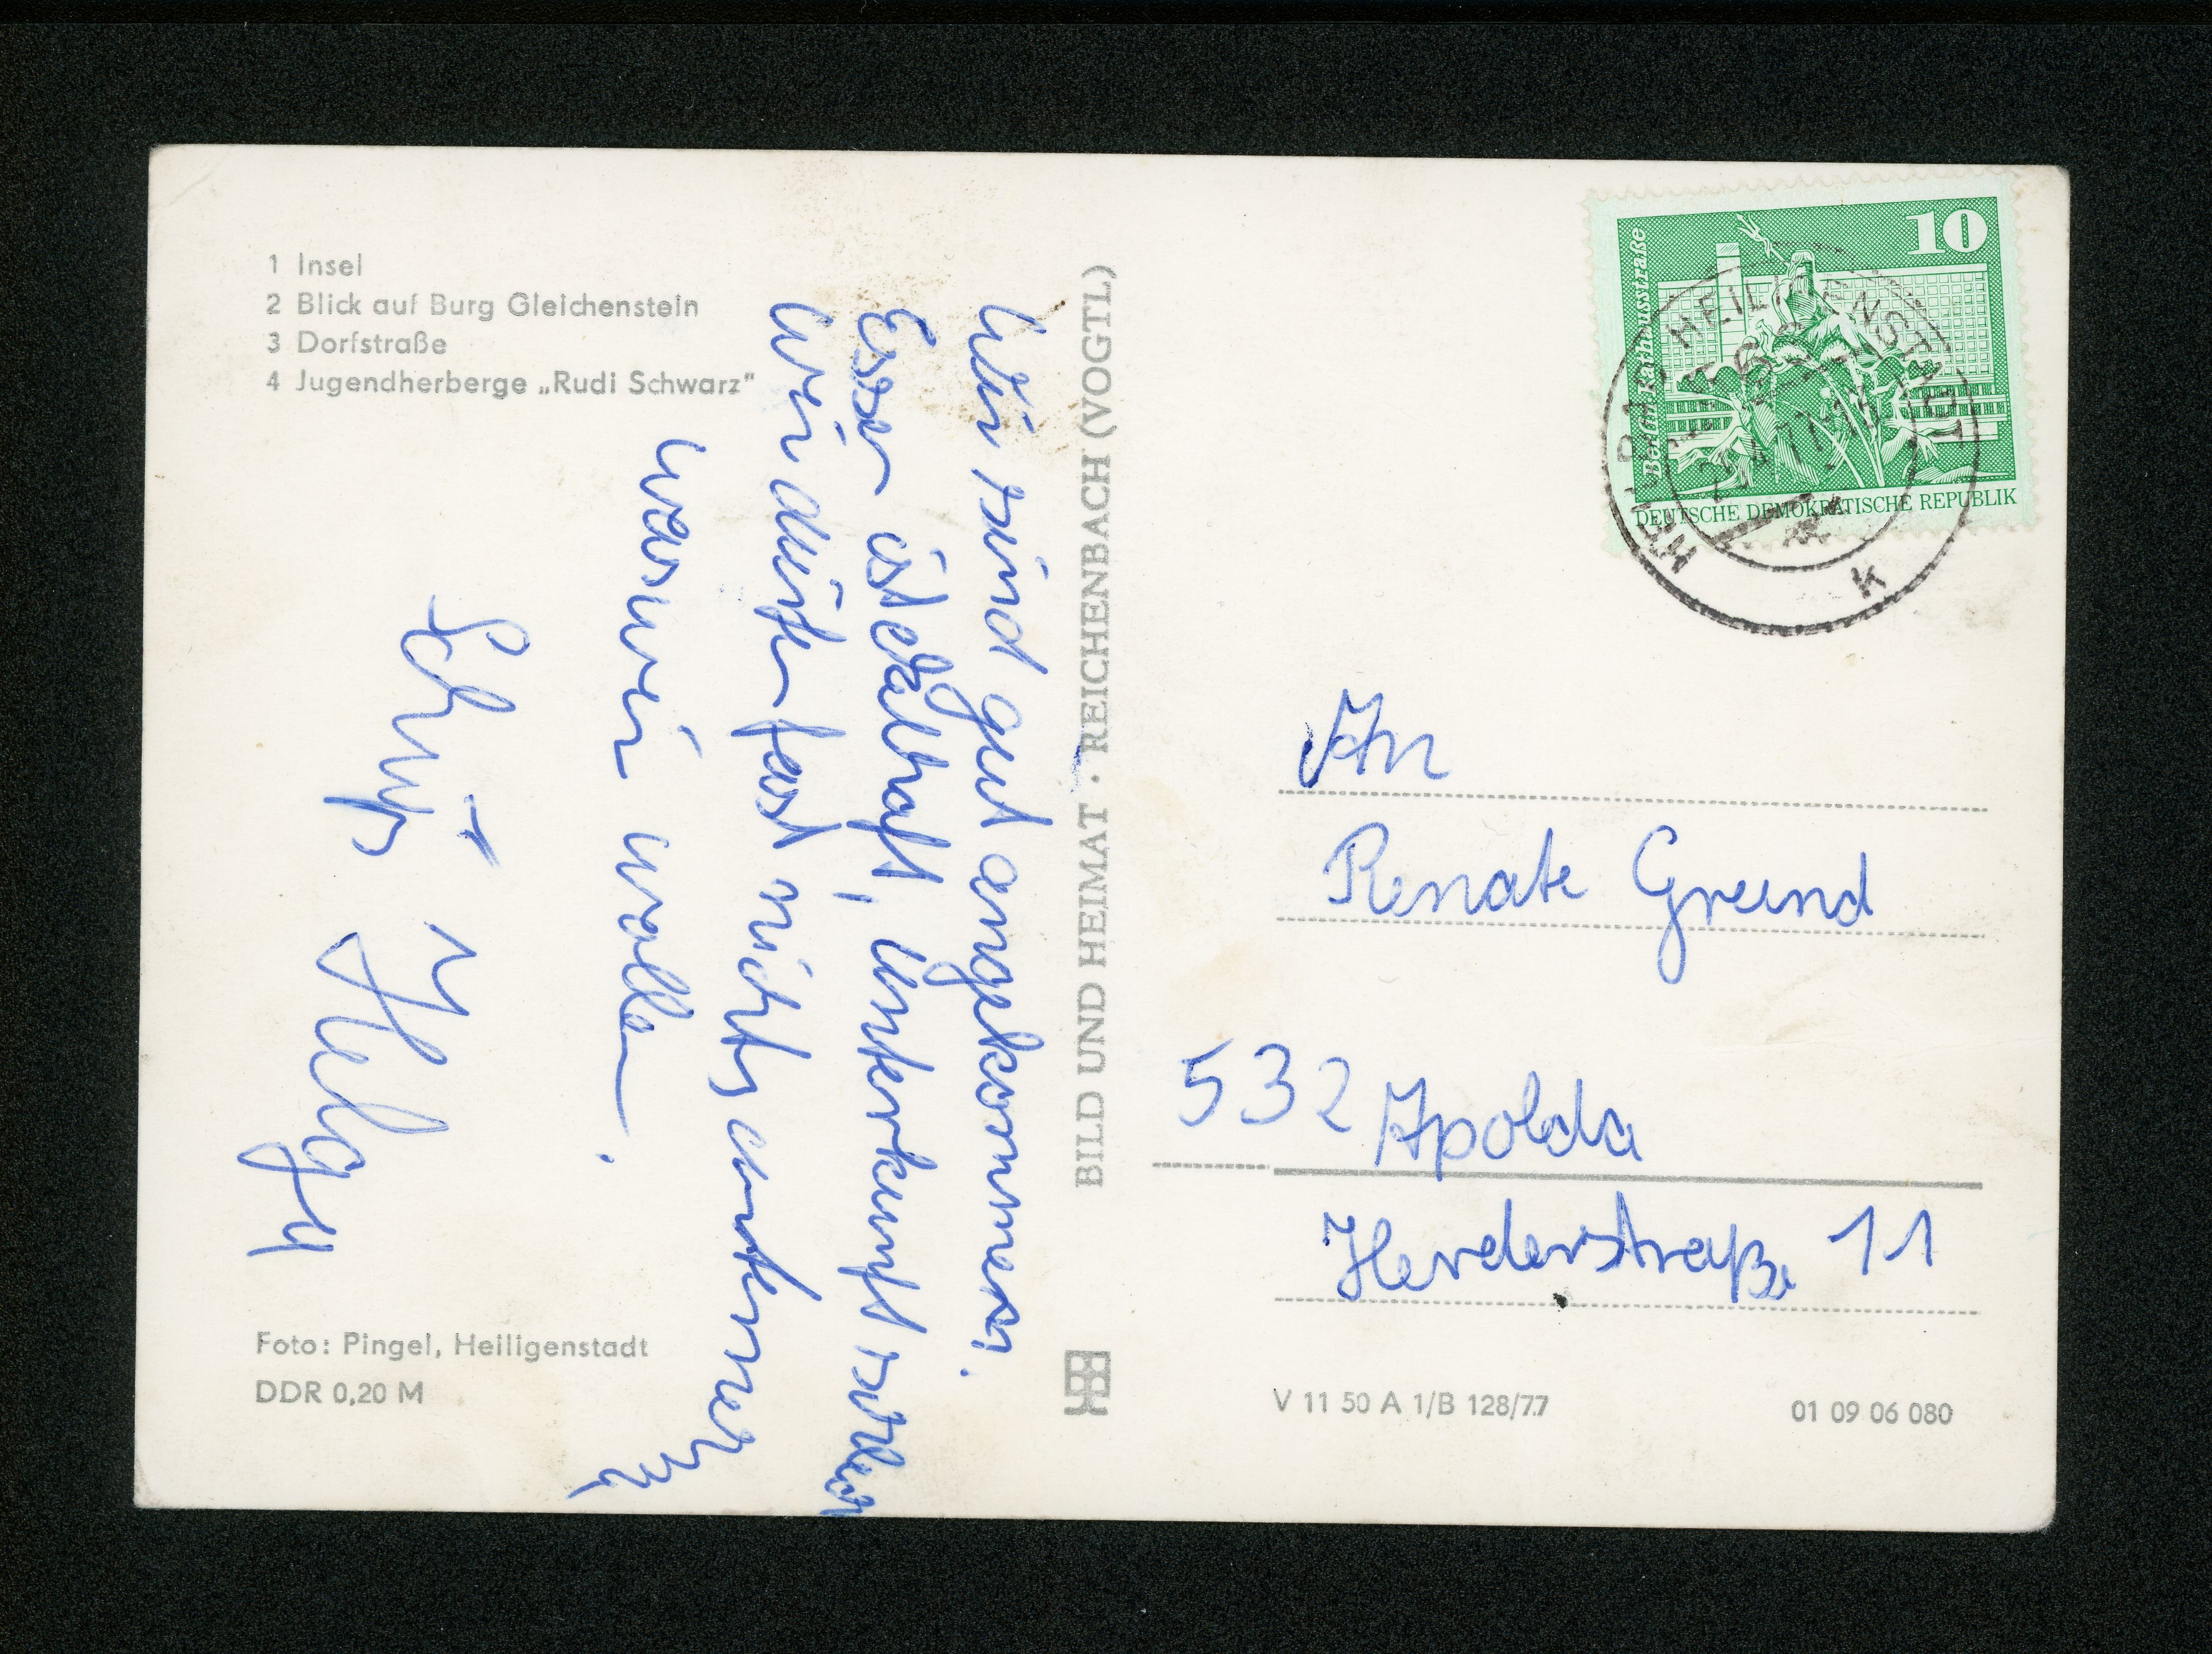 1 Insel
2 Blick auf Burg Gleichenstein
3 Dorfstraße
4 Jugendherberge „Rudi Schwarz"
Wir sind gut angekommen.
Essen ist ekelhaft, Unterkunft
Wir dürfen fast nichts unternehmen
was wir wollen.
Helga
Foto: Pingel, Heiligenstadt
DDR 0,20 M
BILD UND HEIMAT · REICHENBACH (VOGTL)
10
Berlin Rathausstraße
DEUTSCHE DEMOKRATISCHE REPUBLIK
HEILIGENSTADT
k
An
Renate Grund
532 Apolda
Herderstraße 11
V 11 50 A 1/B 128/77
01 09 06 080